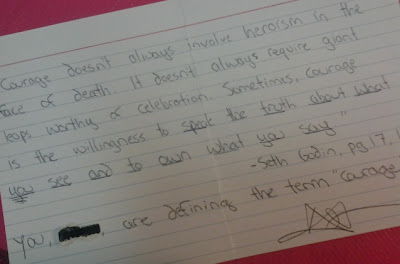 Courage doesn't always involve heroism in the
face of death. It doesn't always require giant
leaps worthy of celebration. Sometimes, courage
is the willingness to speak the truth about what
you see and to own what you say."
-Seth Godin, pg 17,
You, , are defining the term "Courage